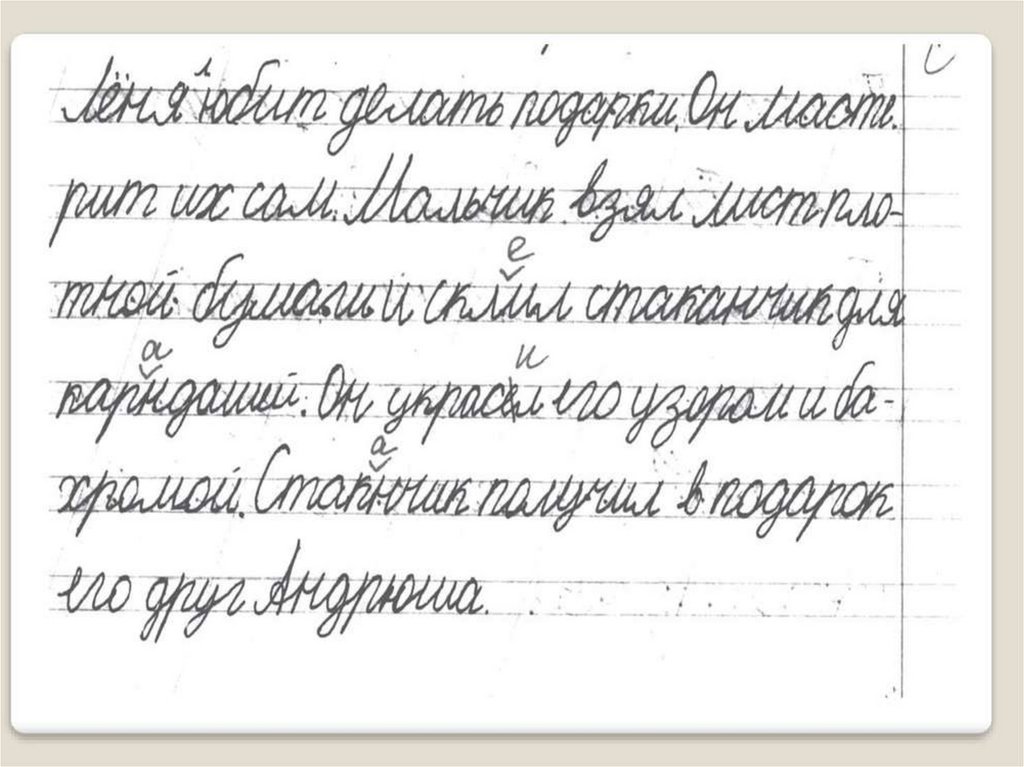 Лёня любит делать подарки. Он масте-
рит их сам. Мальчик взял лист пло-
тной бумаги и склеил стаканчик для
карандашей. Он украсил его узором и ба-
хромой. Стаканчик получил в подарок
его друг Андрюша.